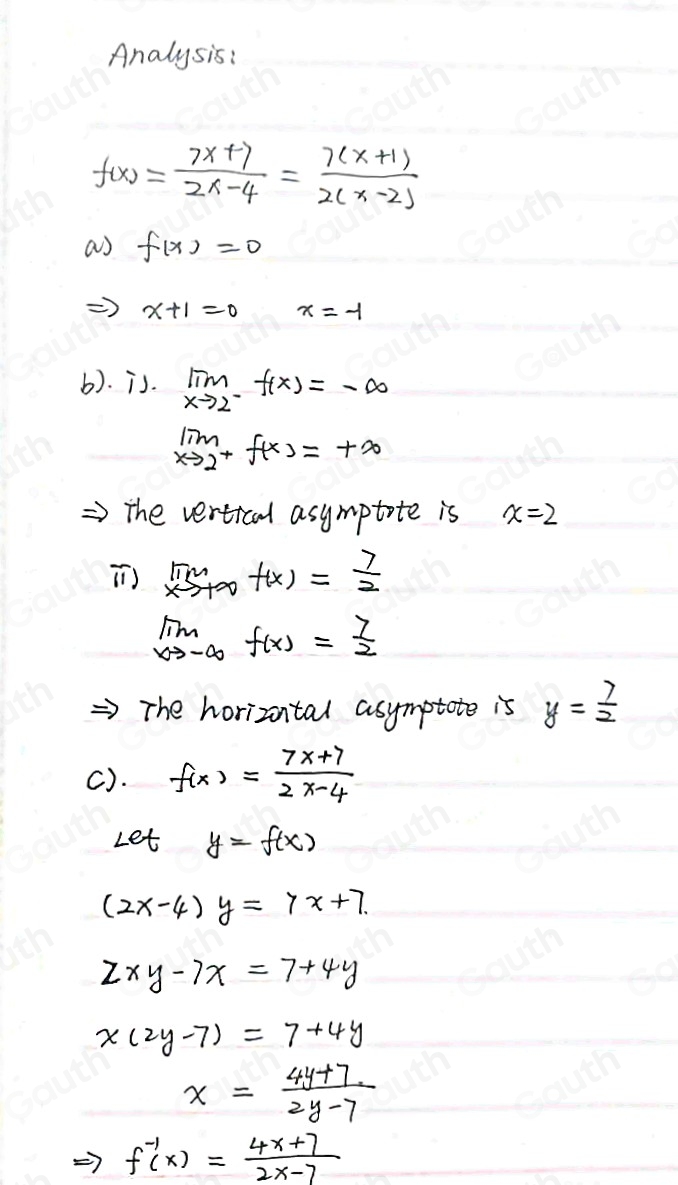 Analysis:
f(x) = (7x+7)/(2x-4) = 7(x+1)/2(x-2)
a) f(x) = 0
=> x+1=0 x=-1
b). i). lim x→2⁻ f(x) = -∞
lim x→2⁺ f(x) = +∞
=> The vertical asymptote is x=2
ii) lim x→+∞ f(x) = 7/2
lim x→-∞ f(x) = 7/2
=> The horizontal asymptote is y = 7/2
c). f(x) = (7x+7)/(2x-4)
Let y = f(x)
(2x-4) y = 7x+7.
2xy-7x = 7+4y
x(2y-7) = 7+4y
x = (4y+7.)/(2y-7)
=> f⁻¹(x) = (4x+7)/(2x-7)
Gauth